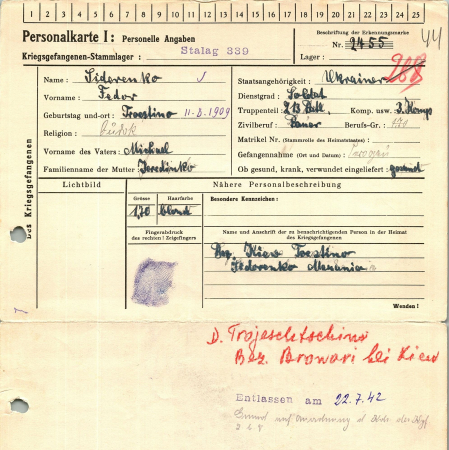 1 2 3 4 5 6 7 8 9 10 11 12 13 14 15 16 17 18 19 20 21 22 23 24 25
Personalkarte I: Personelle Angaben
Kriegsgefangenen-Stammlager: Stalag 339
Beschriftung der Erkennungsmarke
Nr. 2455
44
Lager:
268
Des Kriegsgefangenen
Name: Sidorenko
Vorname: Fedor
Geburtstag und -ort: Troestino 11.8.1909
Religion:
Vorname des Vaters: Michael
Familienname der Mutter:
Staatsangehörigkeit: Ukrainer
Dienstgrad: Soldat
Truppenteil: Komp. usw.
Zivilberuf: Bauer Berufs-Gr.:
Matrikel Nr. (Stammrolle des Heimatstaates)
Gefangennahme (Ort und Datum):
Ob gesund, krank, verwundet eingeliefert: gesund
Lichtbild
Nähere Personalbeschreibung
Grösse
1,70
Haarfarbe
blond
Besondere Kennzeichen:
Fingerabdruck
des rechten! Zeigefingers
Name und Anschrift der zu benachrichtigenden Person in der Heimat
des Kriegsgefangenen
Kiew Troestino
Sidorenko
Wenden!
D. Trojeschtschino
Bez. Browari bei Kiew
Entlassen am 22.7.42
Grund: auf Anordnung d.